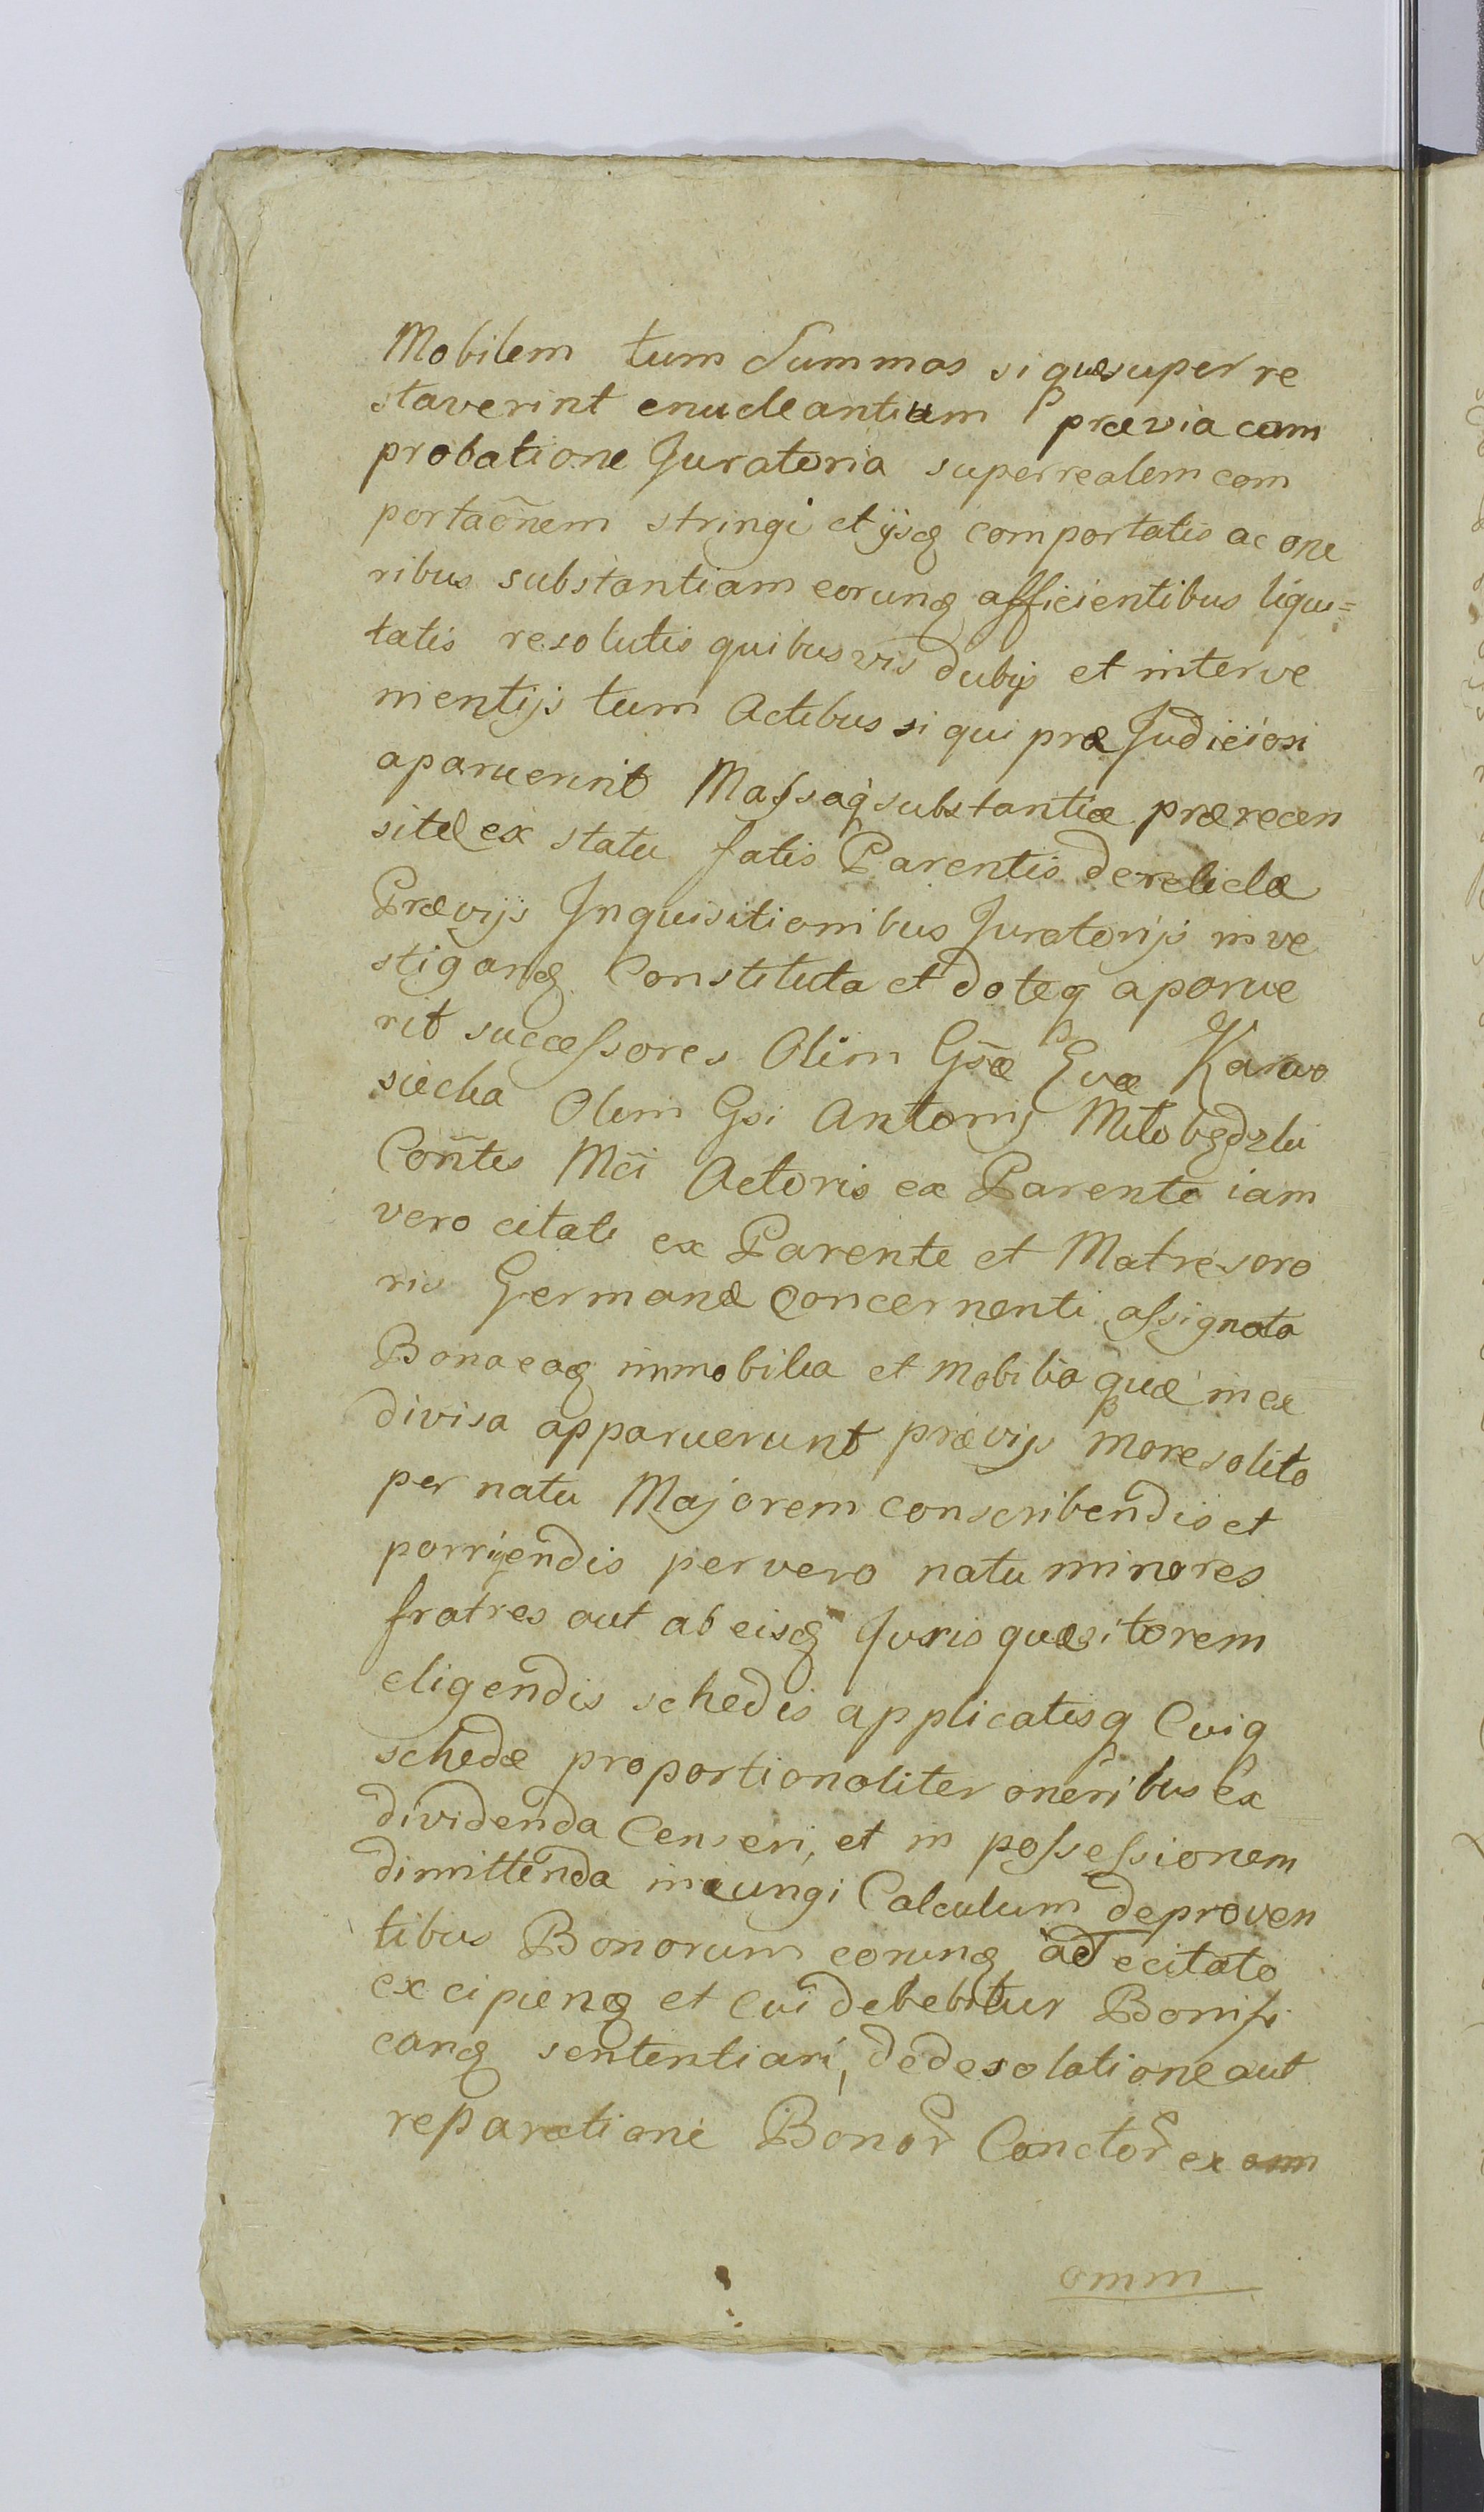 Mobilem tum Summas si quæ super re
staverint enucleantium prævia com
probatione Juratoria super realem com
portaõnem stringi et ijsq comportatis ac one
ribus substantiam eorunq afficientibus liqui=
tatis resolutis quibusvis dubijs et interve
nientijs tum Actibus si qui præ Judiciosi
aparuerint Massaq substantiæ præ recen
sitæ ex statu fatis Parentis derelictæ
Prævijs Inquisitionibus Juratorijs inve
stigang Constituta et doteq aparue
rit successores Olim Gsæ Evæ Karwo
siecka Olim Gsi Antonij Miłobędzki
Coñtes Mci Actoris ex Parente iam
vero citati ex Parente et Matre soro
ris Germanæ concernenti assignata
Bona eaq immobilia et mobilia quæ in ex
divisa apparuerunt prævijs more solito
per natu Majorem conscribendis et
porrigendis per vero natu minores
fratres aut ab eisq Juris quæsitorem
eligendis schedis applicatisq Cuiq
schedæ proportionaliter oneribus ex
dividenda Censeri, et in possessionem
dimittenda iniungi Calculum de proven
tibus Bonorum eorunq ad e citato
excipienq et cui debebitur Bonifi
canq sententiari, de desolatione aut
reparatione Bonor Conctor ex
omm